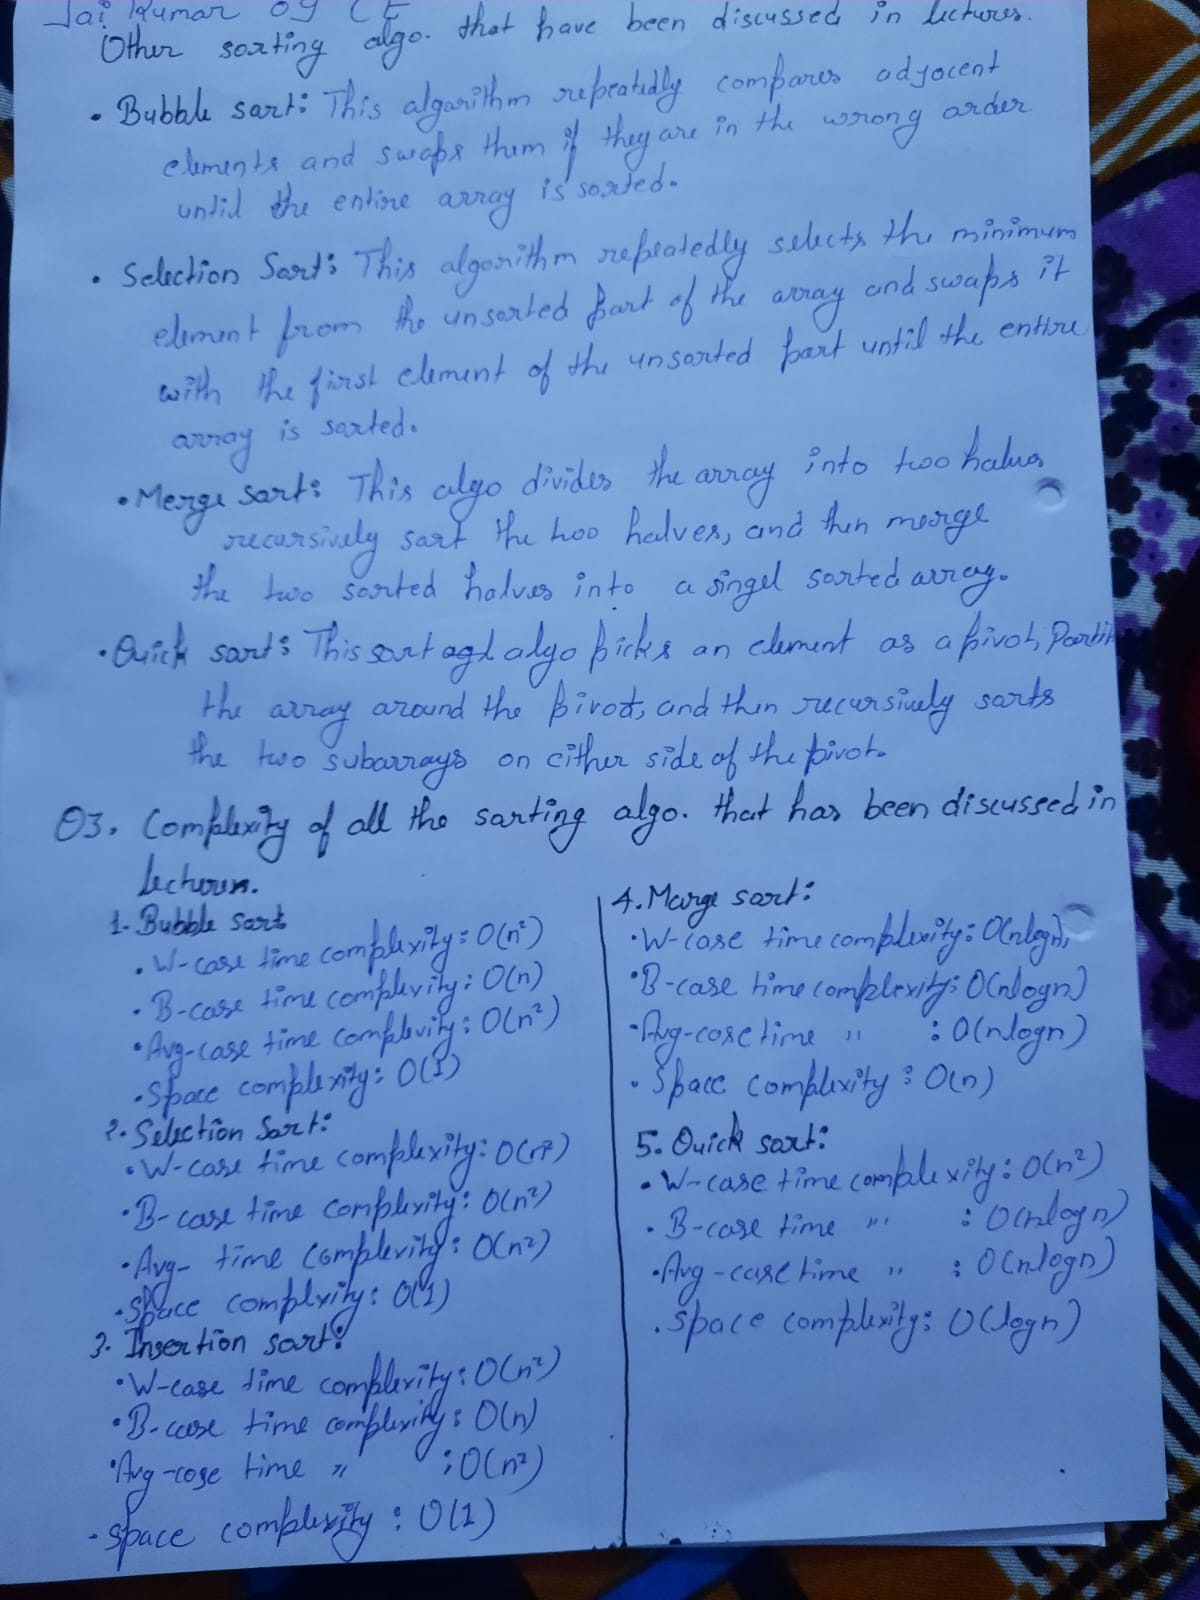 Jai Kumar 09 CE
Other sorting algo. that have been discussed in lectures.
• Bubble sort: This algorithm repeatedly compares adjocent
elements and swaps them if they are in the wrong order
until the entire array is sorted.
• Selection Sort: This algorithm repeatedly selects the minimum
element from the unsorted part of the array and swaps it
with the first element of the unsorted part until the entire
array is sorted.
• Merge sort: This algo divides the array into two halves
recursively sort the two halves, and then merge
the two sorted halves into a singel sorted array.
• Quick sort: This sort algo picks an element as a pivot, Partit
the array around the pivot, and then recursively sorts
the two subarrays on either side of the pivot.
Q3. Complexity of all the sorting algo. that has been discussed in
lectures.
1. Bubble sort
• W-case time complexity: O(n²)
• B-case time complexity: O(n)
• Avg-case time complexity: O(n²)
• Space complexity: O(1)
2. Selection Sort:
• W-case time complexity: O(n²)
• B-case time complexity: O(n²)
• Avg- time complexity: O(n²)
• Space complexity: O(1)
3. Insertion sort:
• W-case time complexity: O(n²)
• B-case time complexity: O(n)
• Avg-case time " : O(n²)
• Space complexity: O(1)
4. Merge sort:
• W-case time complexity: O(nlogn)
• B-case time complexity: O(nlogn)
• Avg-case time " : O(nlogn)
• Space complexity: O(n)
5. Quick sort:
• W-case time complexity: O(n²)
• B-case time " : O(nlogn)
• Avg-case time " : O(nlogn)
• Space complexity: O(logn)